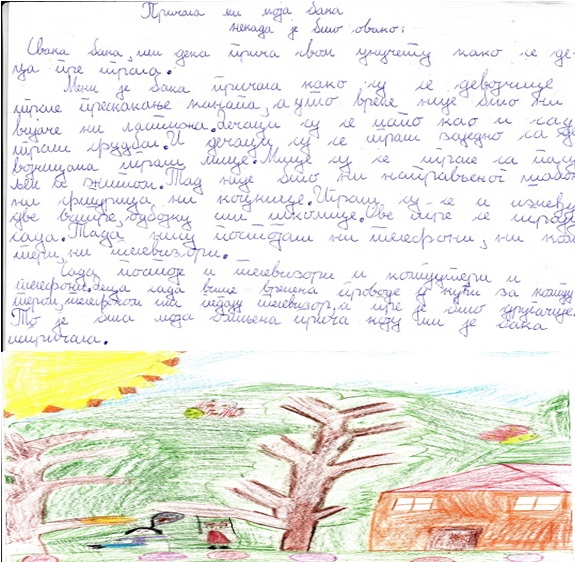 Причала ми моја бака
некада је било овако:
Свака бака, или дека прича свом унучету како се де-
ца пре играла.
Мени је бака причала како су се девојчице
играле прескакање канапа, а у то време није било ни
вијаче ни ластиша. Дечаци су се исто као и сад
играли фудбал. И дечаци су се играли заједно са де
војчицама играли
Тад није било ни направљеног
ни ни коцкице. Играли су се и између
две ватре, или школице. Ове игре се играју
сада. Тада нису постојали ни телефони, ни ком
тери, ни телевизори.
Сада постоје и телевизори и компјутери и
телефони. Деца сада више времена проводе у кући за компју
тером, телефоном или гледају телевизор, а пре је било другачије.
То је била моја омиљена прича коју ми је бака
испричала.